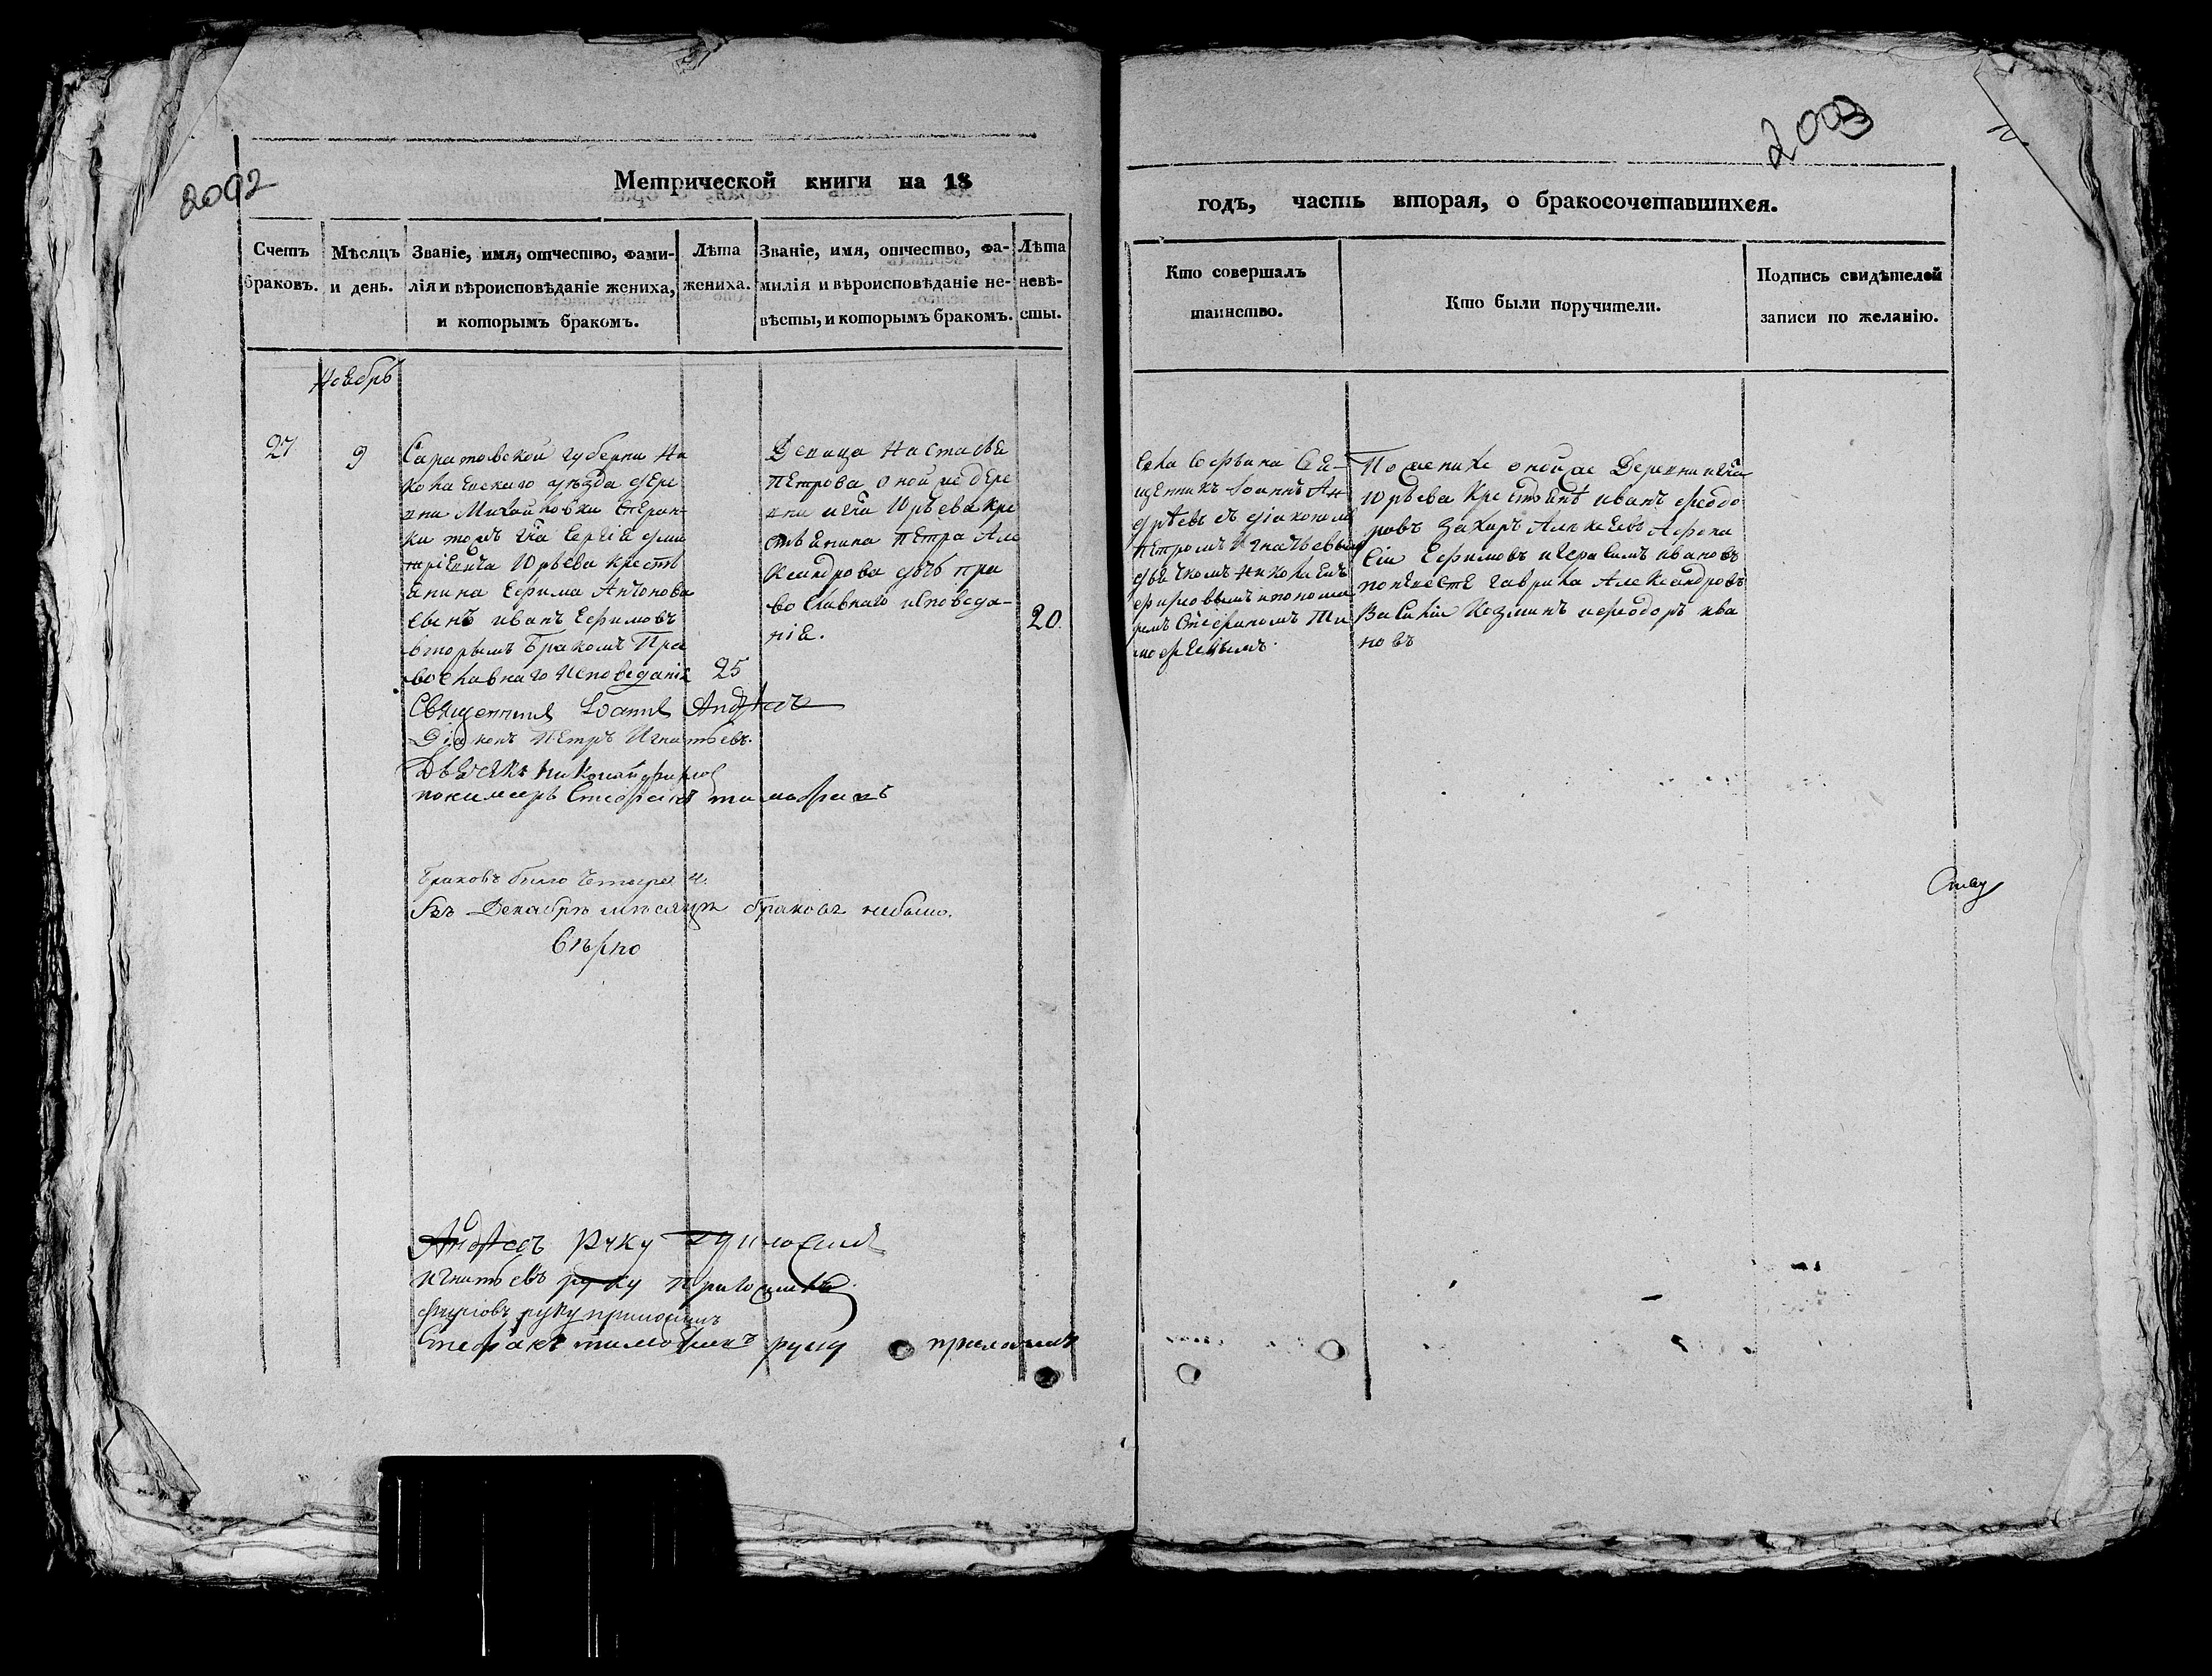 2092
Метрической книги на 18
Счетъ браковъ.
Мѣсяцъ и день.
Званіе, имя, отчество, фами-
лія и вѣроисповѣданіе жениха,
и которымъ бракомъ.
Лѣта
жениха.
Званіе, имя, отчество, фа-
милія и вѣроисповѣданіе не-
вѣсты, и которымъ бракомъ.
Лѣта
невѣ-
сты.
Ноебрь
27
9
Саратовской губерни Ни
колаевскаго уѣзда дере
вни Михайловки
Сергіе дми
тріевича Юрьева кресть
енина Ефима Антонова
сынъ иванъ Ефимовъ
вторымъ бракомъ Пра
вославнаго исповеданія
25
Девица Настасья
Петрова оной же дере
вни Юрьева кре
стьенина Петра Але
ксандрова дочь пра
вославнаго исповеда-
ніе.
20.
Священникъ Іоаннъ Андреевъ
Діаконъ Петръ Игнатьевъ.
Дьячекъ Николай
пономарь Стефанъ
браковъ было четыре 4.
Въ Декабрѣ мѣсяцѣ браковъ небыло.
Вѣрно
Андреевъ руку приложилъ
Игнатьевъ руку приложилъ
руку приложилъ
Стефанъ руку приложилъ
2093
годъ, часть вторая, о бракосочетавшихся.
Кто совершалъ
таинство.
Кто были поручители.
Подпись свидѣтелей
записи по желанію.
села Софьина Све-
щенникъ Іоаннъ Ан
дреевъ съ діакономъ
Петромъ Игнатьевымъ
дьячкомъ Николаемъ
и понома
ремъ Стефаномъ Ти
мофеевымъ.
По женихе оной же Деревни
Юрьева крестьене иванъ феодо
ровъ Захаръ Алексеевъ Афона
сіи Ефимовъ и Герасимъ ивановъ
поневесте гаврила Александровъ
Василіи Козминъ и феодоръ ива
новъ